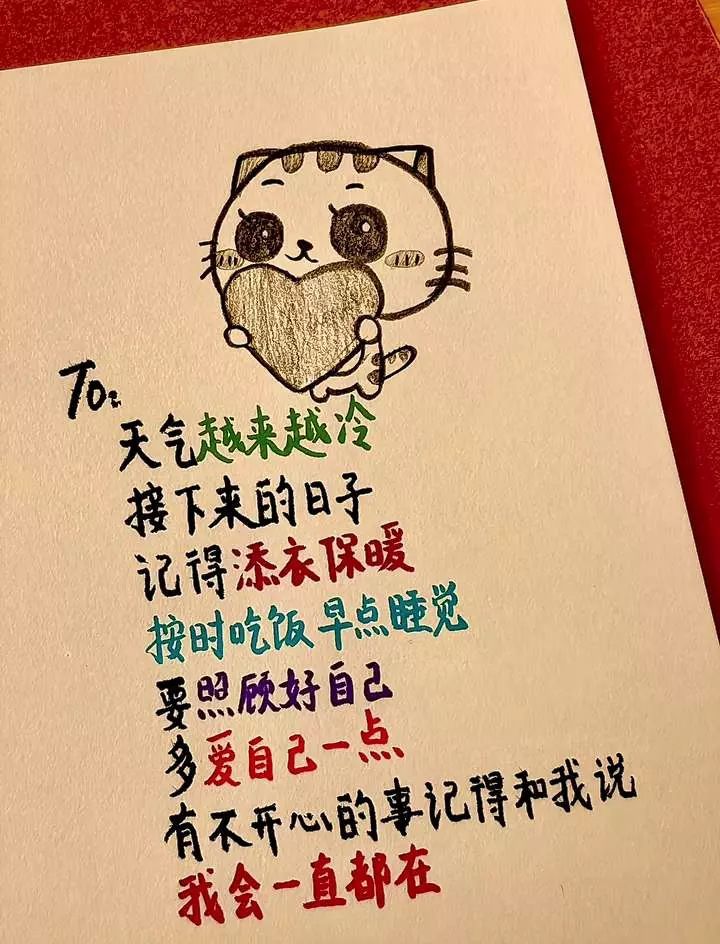 To:
天气越来越冷
接下来的日子
记得添衣保暖
按时吃饭 早点睡觉
要照顾好自己
多爱自己一点
有不开心的事记得和我说
我会一直都在